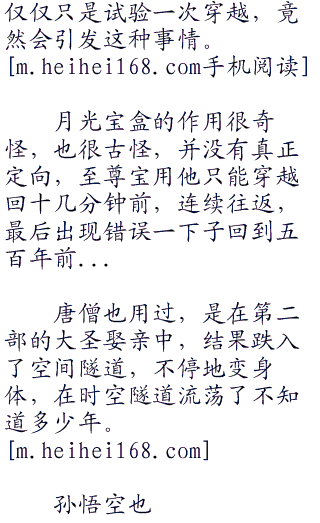 仅仅只是试验一次穿越，竟
然会引发这种事情。
[m.heihei168.com手机阅读]
月光宝盒的作用很奇
怪，也很古怪，并没有真正
定向，至尊宝用他只能穿越
回十几分钟前，连续往返，
最后出现错误一下子回到五
百年前...
唐僧也用过，是在第二
部的大圣娶亲中，结果跌入
了空间隧道，不停地变身
体，在时空隧道流荡了不知
道多少年。
[m.heihei168.com]
孙悟空也